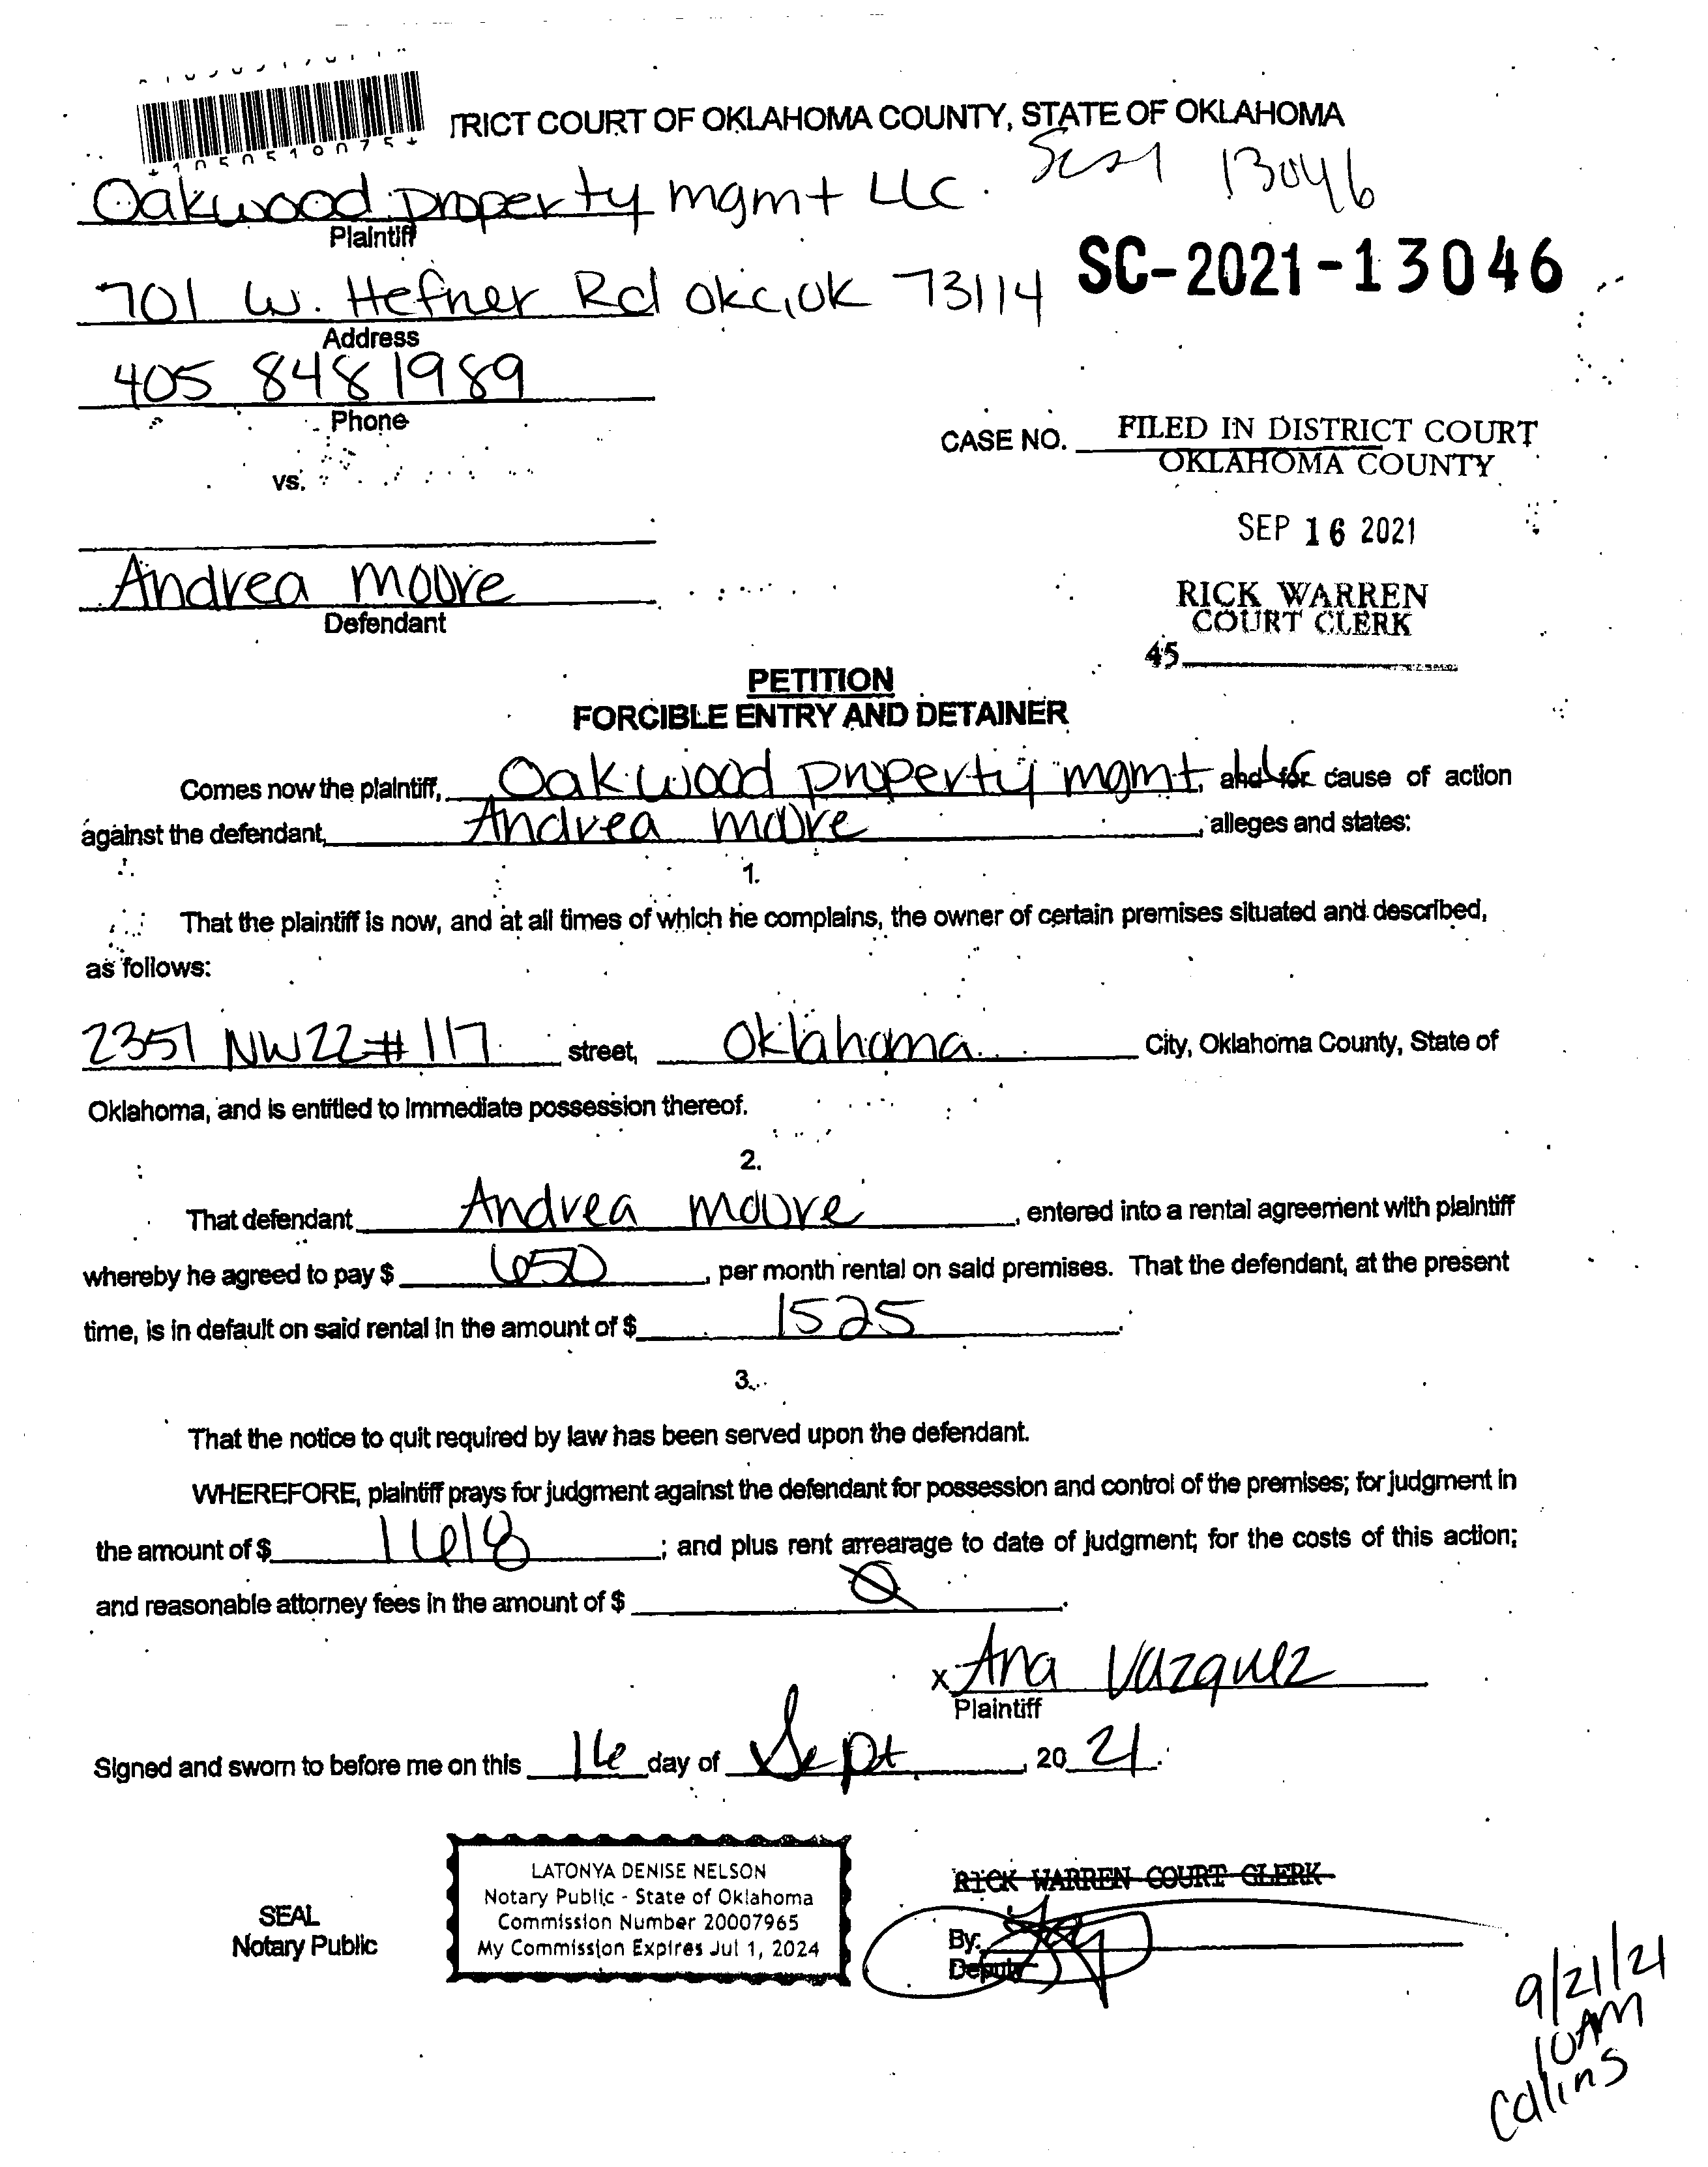 TRICT COURT OF OKLAHOMA COUNTY, STATE OF OKLAHOMA
*1050510075*
13046
Oakwood property mgmt LLC.
Plaintiff
SC-2021-13046
701 W. Hefner Rd OKC, OK 73114
Address
405 848 1989
Phone
CASE NO. FILED IN DISTRICT COURT
OKLAHOMA COUNTY
vs.
SEP 16 2021
Andrea Moore
Defendant
RICK WARREN
COURT CLERK
45
PETITION
FORCIBLE ENTRY AND DETAINER
Comes now the plaintiff, Oakwood property mgmt, LLC and for cause of action
against the defendant, Andrea Moore, alleges and states:
1.
That the plaintiff is now, and at all times of which he complains, the owner of certain premises situated and described,
as follows:
2351 NW 22 # 117 street, Oklahoma City, Oklahoma County, State of
Oklahoma, and is entitled to immediate possession thereof.
2.
That defendant Andrea Moore, entered into a rental agreement with plaintiff
whereby he agreed to pay $ 650, per month rental on said premises. That the defendant, at the present
time, is in default on said rental in the amount of $ 1525.
3.
That the notice to quit required by law has been served upon the defendant.
WHEREFORE, plaintiff prays for judgment against the defendant for possession and control of the premises; for judgment in
the amount of $ 1618; and plus rent arrearage to date of judgment; for the costs of this action;
and reasonable attorney fees in the amount of $ Ø.
x Ana Vazquez
Plaintiff
Signed and sworn to before me on this 16 day of Sept, 20 21.
LATONYA DENISE NELSON
Notary Public - State of Oklahoma
Commission Number 20007965
My Commission Expires Jul 1, 2024
SEAL
Notary Public
RICK WARREN COURT CLERK
By:
Deputy
9/21/21
10AM
Collins